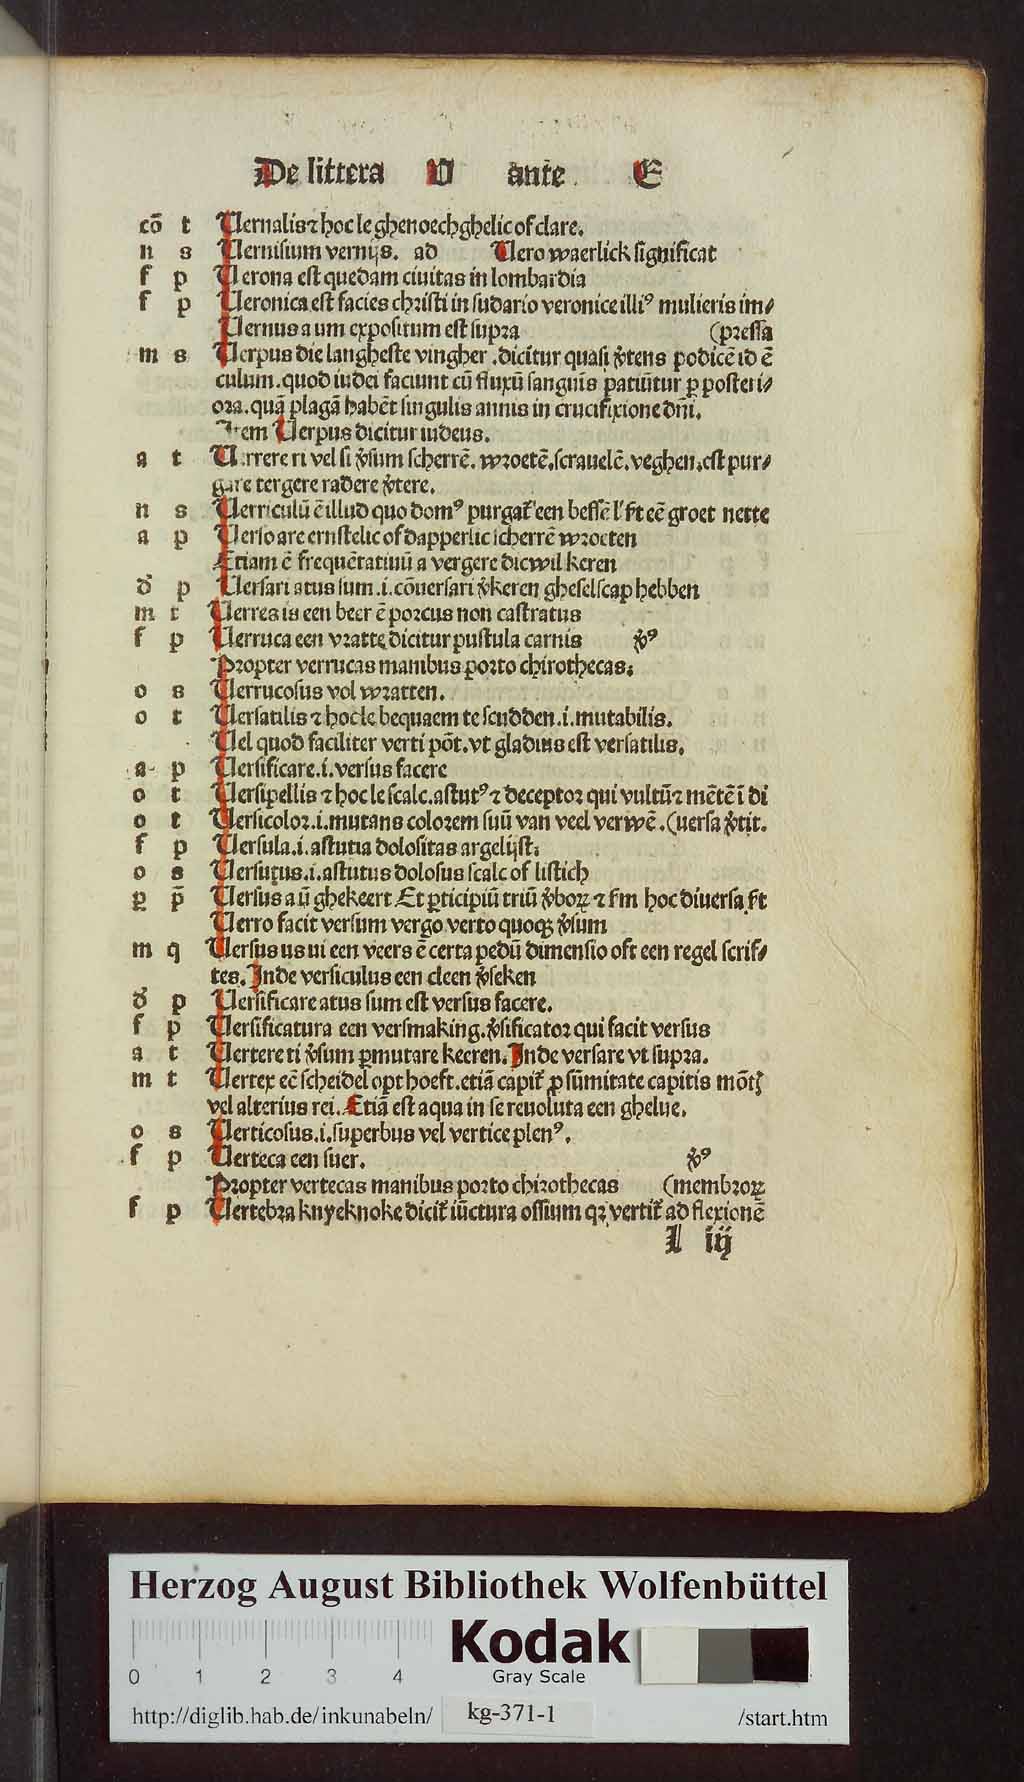 De littera U ante E
cō t Uernalis ⁊ hoc le ghenoechghelic of clare.
n s Uernisium vernijs. ad Uero waerlick significat
f p Uerona est quedam ciuitas in lombardia
f p Ueronica est facies christi in sudario veronice illiꝰ mulieris im⸗
Uernus a um expositum est supra (pressa
m s Uerpus die langheste vingher .dicitur quasi v̓tens podicē id ē
culum.quod iudei faciunt cū fluxū sanguīs patiūtur ꝑ posteri⸗
ora.quā plagā habēt singulis annis in crucifixione dn̄i.
Item Uerpus dicitur iudeus.
a t Uerrere ri vel si v̓sum scherrē. wroetē.scrauelē.veghen.est pur⸗
gare tergere radere v̓tere.
n s Uerriculū ē illud quo domꝰ purgat᷑ een bessē l' st̄ eē groet nette
a p Uerso are ernstelic of dapperlic scherrē wroeten
Etiam ē frequētatiuū a vergere dicwil keren
d̓ p Uersari atus sum.i.cōuersari v̓keren gheselscap hebben
m t Uerres is een beer ē porcus non castratus
f p Uerruca een vratte dicitur pustula carnis v̓ꝰ
Propter verrucas manibus porto chirothecas.
o s Uerrucosus vol wratten.
o t Uersatilis ⁊ hoc le bequaem te scudden.i.mutabilis.
Uel quod faciliter verti pōt.vt gladius est versatilis.
a p Uersificare.i.versus facere
o t Uersipellis ⁊ hoc le scalc.astutꝰ ⁊ deceptor qui vultū ⁊ mētē ī di
o t Uersicolor.i.mutans colorem suū van veel verwē.(uersa v̓tit.
f p Uersula.i.astutia dolositas argelijst.
o s Uersutus.i.astutus dolosus scalc of listich
ꝑ p̄ Uersus a ū ghekeert Et ꝑticipiū triū v̓boꝝ ⁊ fm hoc diuersa st̄
Uerro facit versum vergo verto quoqꝫ v̓sum
m q Uersus us ui een veers ē certa pedū dimensio oft een regel scrif⸗
tes. Inde versiculus een cleen v̓seken
d̓ p Uersificare atus sum est versus facere.
f p Uersificatura een versmaking.v̓sificator qui facit versus
a t Uertere ti v̓sum ꝑmutare keeren. Inde versare vt supra.
m t Uertex eē scheidel opt hoeft.etiā capit᷑ ꝓ sūmitate capitis mōtꝭ
vel alterius rei. Etiā est aqua in se reuoluta een ghelue.
o s Uerticosus.i.superbus vel vertice plenꝰ.
f p Uerteca een suer. v̓ꝰ
Propter vertecas manibus porto chirothecas (membroꝝ
f p Uertebra knyeknoke dicit᷑ iūctura ossium qꝛ vertit᷑ ad flexionē
l iij
Herzog August Bibliothek Wolfenbüttel
0 1 2 3 4
Kodak
Gray Scale
http://diglib.hab.de/inkunabeln/ kg-371-1 /start.htm